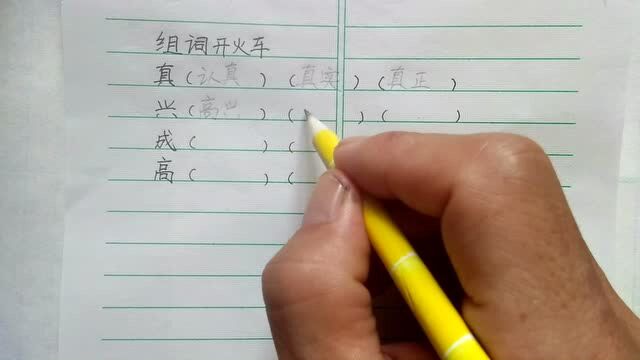 组词开火车
真(认真)(真实)(真正)
兴(高兴)( )( )
成( )(
高( )(